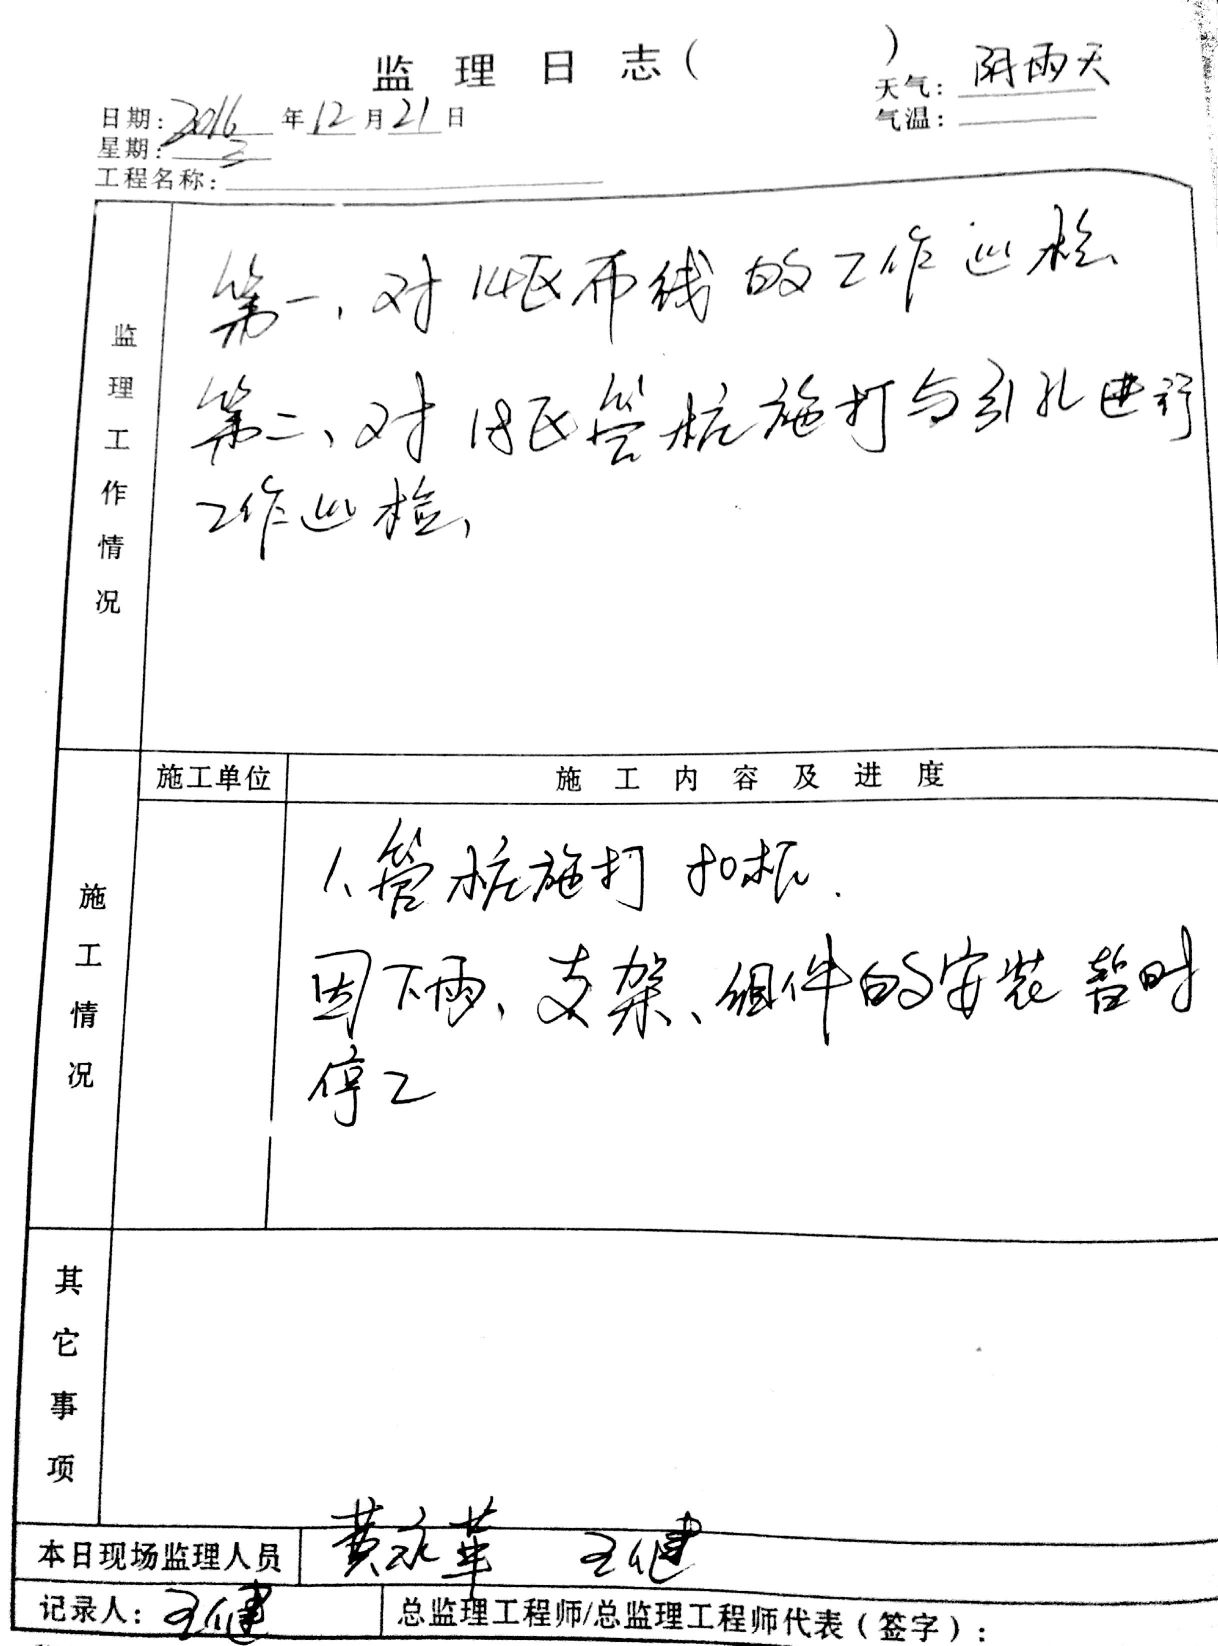 监理日志（ ）
天气：阴雨天
日期：2016年12月21日
气温：
星期：三
工程名称：
监理工作情况
第一、对14区布线的工作巡检、
第二、对18区管桩施打与引孔进行
工作巡检、
施工单位 施工内容及进度
施工情况
1、管桩施打 根.
因下雨、支架、组件的安装暂时
停工
其它事项
本日现场监理人员 黄永华 王健
记录人：王健 总监理工程师/总监理工程师代表（签字）：